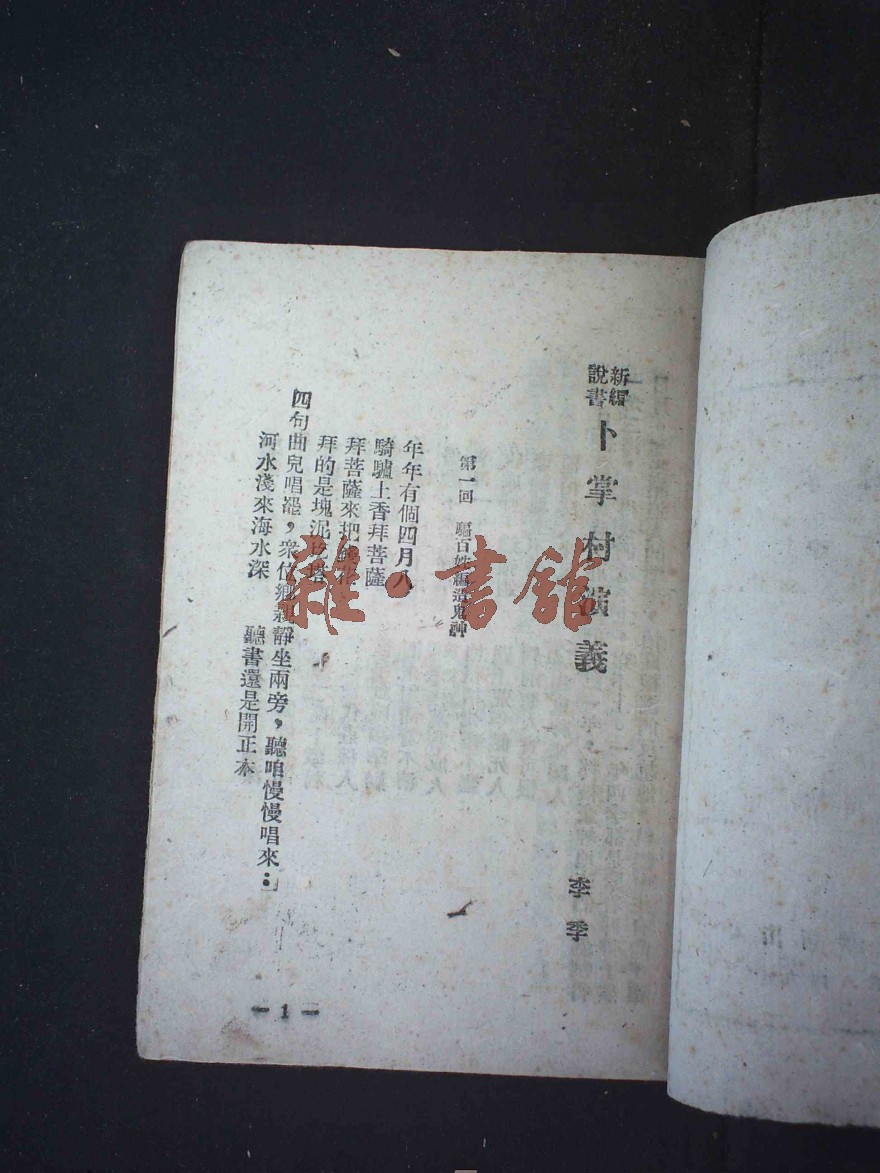 新編
說書
卜掌村演義
李季
第一回 騙百姓編造鬼神
年年有個四月八
騎驢上香拜菩薩
拜菩薩來把
拜的是塊泥圪塔
四句曲兒唱罷，衆位鄉親靜坐兩旁，聽咱慢慢唱來：
河水淺來海水深
聽書還是開正本
雜·書館
— 1 —